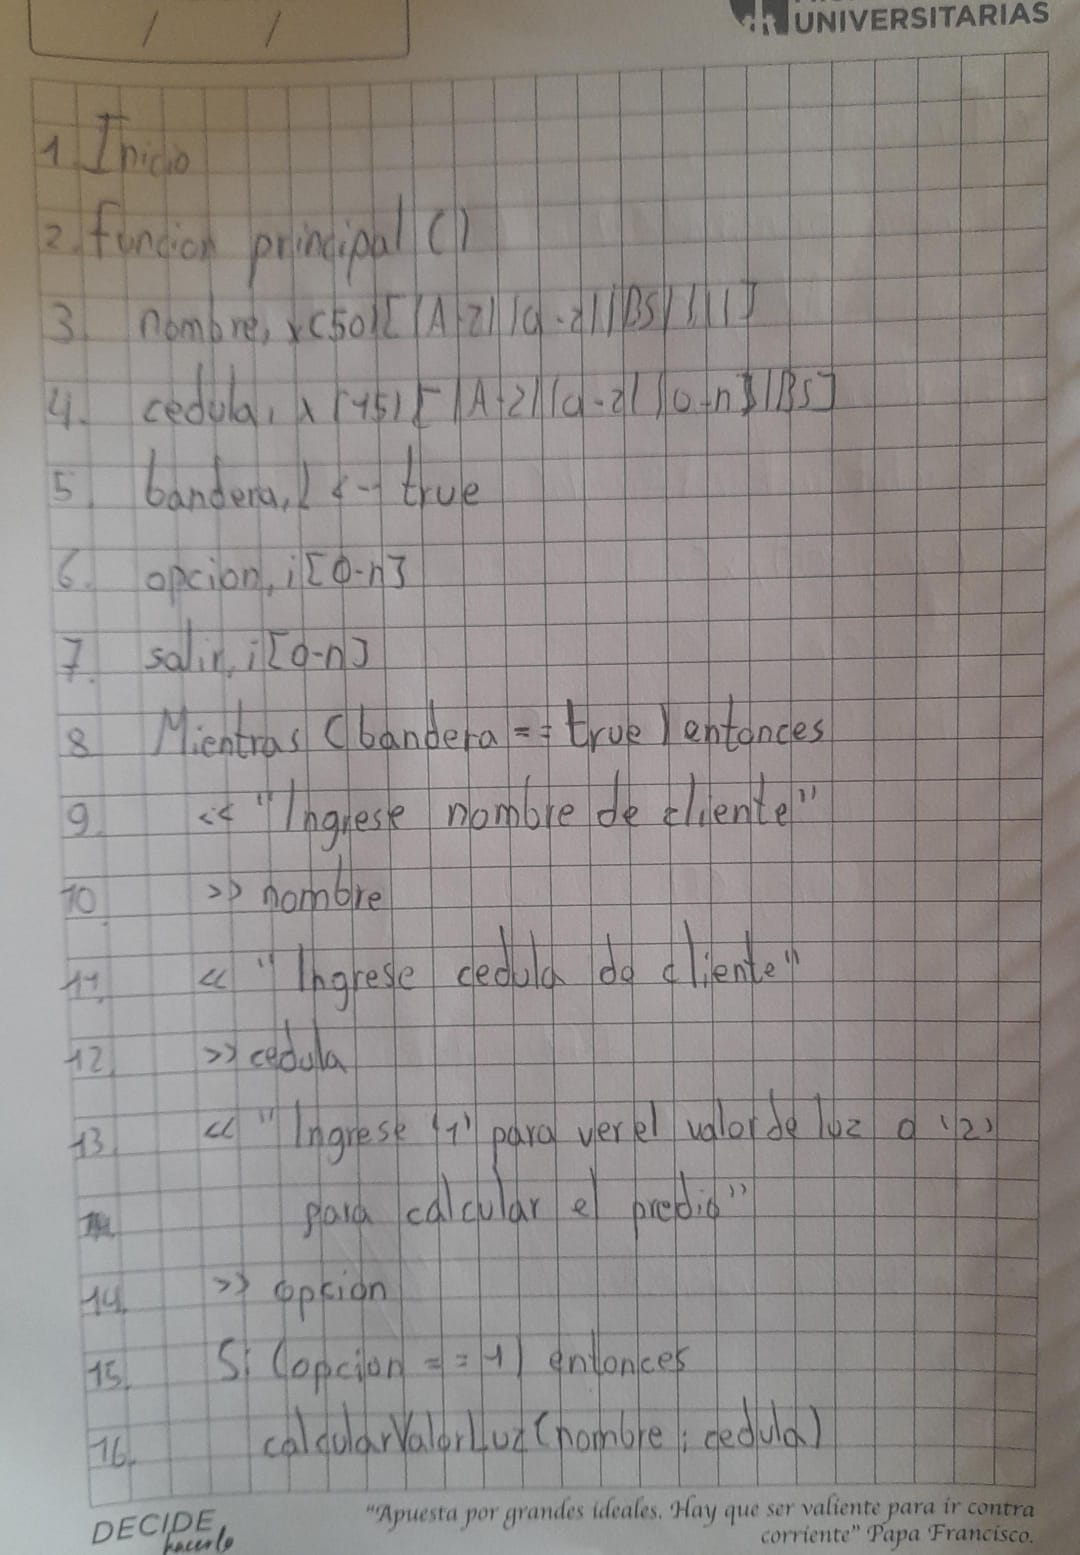 / /
UNIVERSITARIAS
1 Inicio
2. funcion principal ()
3. nombre, x(50)[ |A-z| |a-z| |BS| | | ]
4. cedula, x (15) [ |A-z| |a-z| |0-n| |BS]
5. bandera, l <- true
6. opcion, i [0-n]
7. salir, i [0-n]
8 Mientras (bandera == true) entonces
9. << "Ingrese nombre de cliente"
10 >> nombre
11. << "Ingrese cedula de cliente"
12. >> cedula
13. << "Ingrese '1' para ver el valor de luz o '2'
para calcular el predio"
14. >> opcion
15. Si (opcion == 1) entonces
16. calcularValorLuz (nombre; cedula)
DECIDE, hacerlo
"Apuesta por grandes ideales. Hay que ser valiente para ir contra
corriente" Papa Francisco.